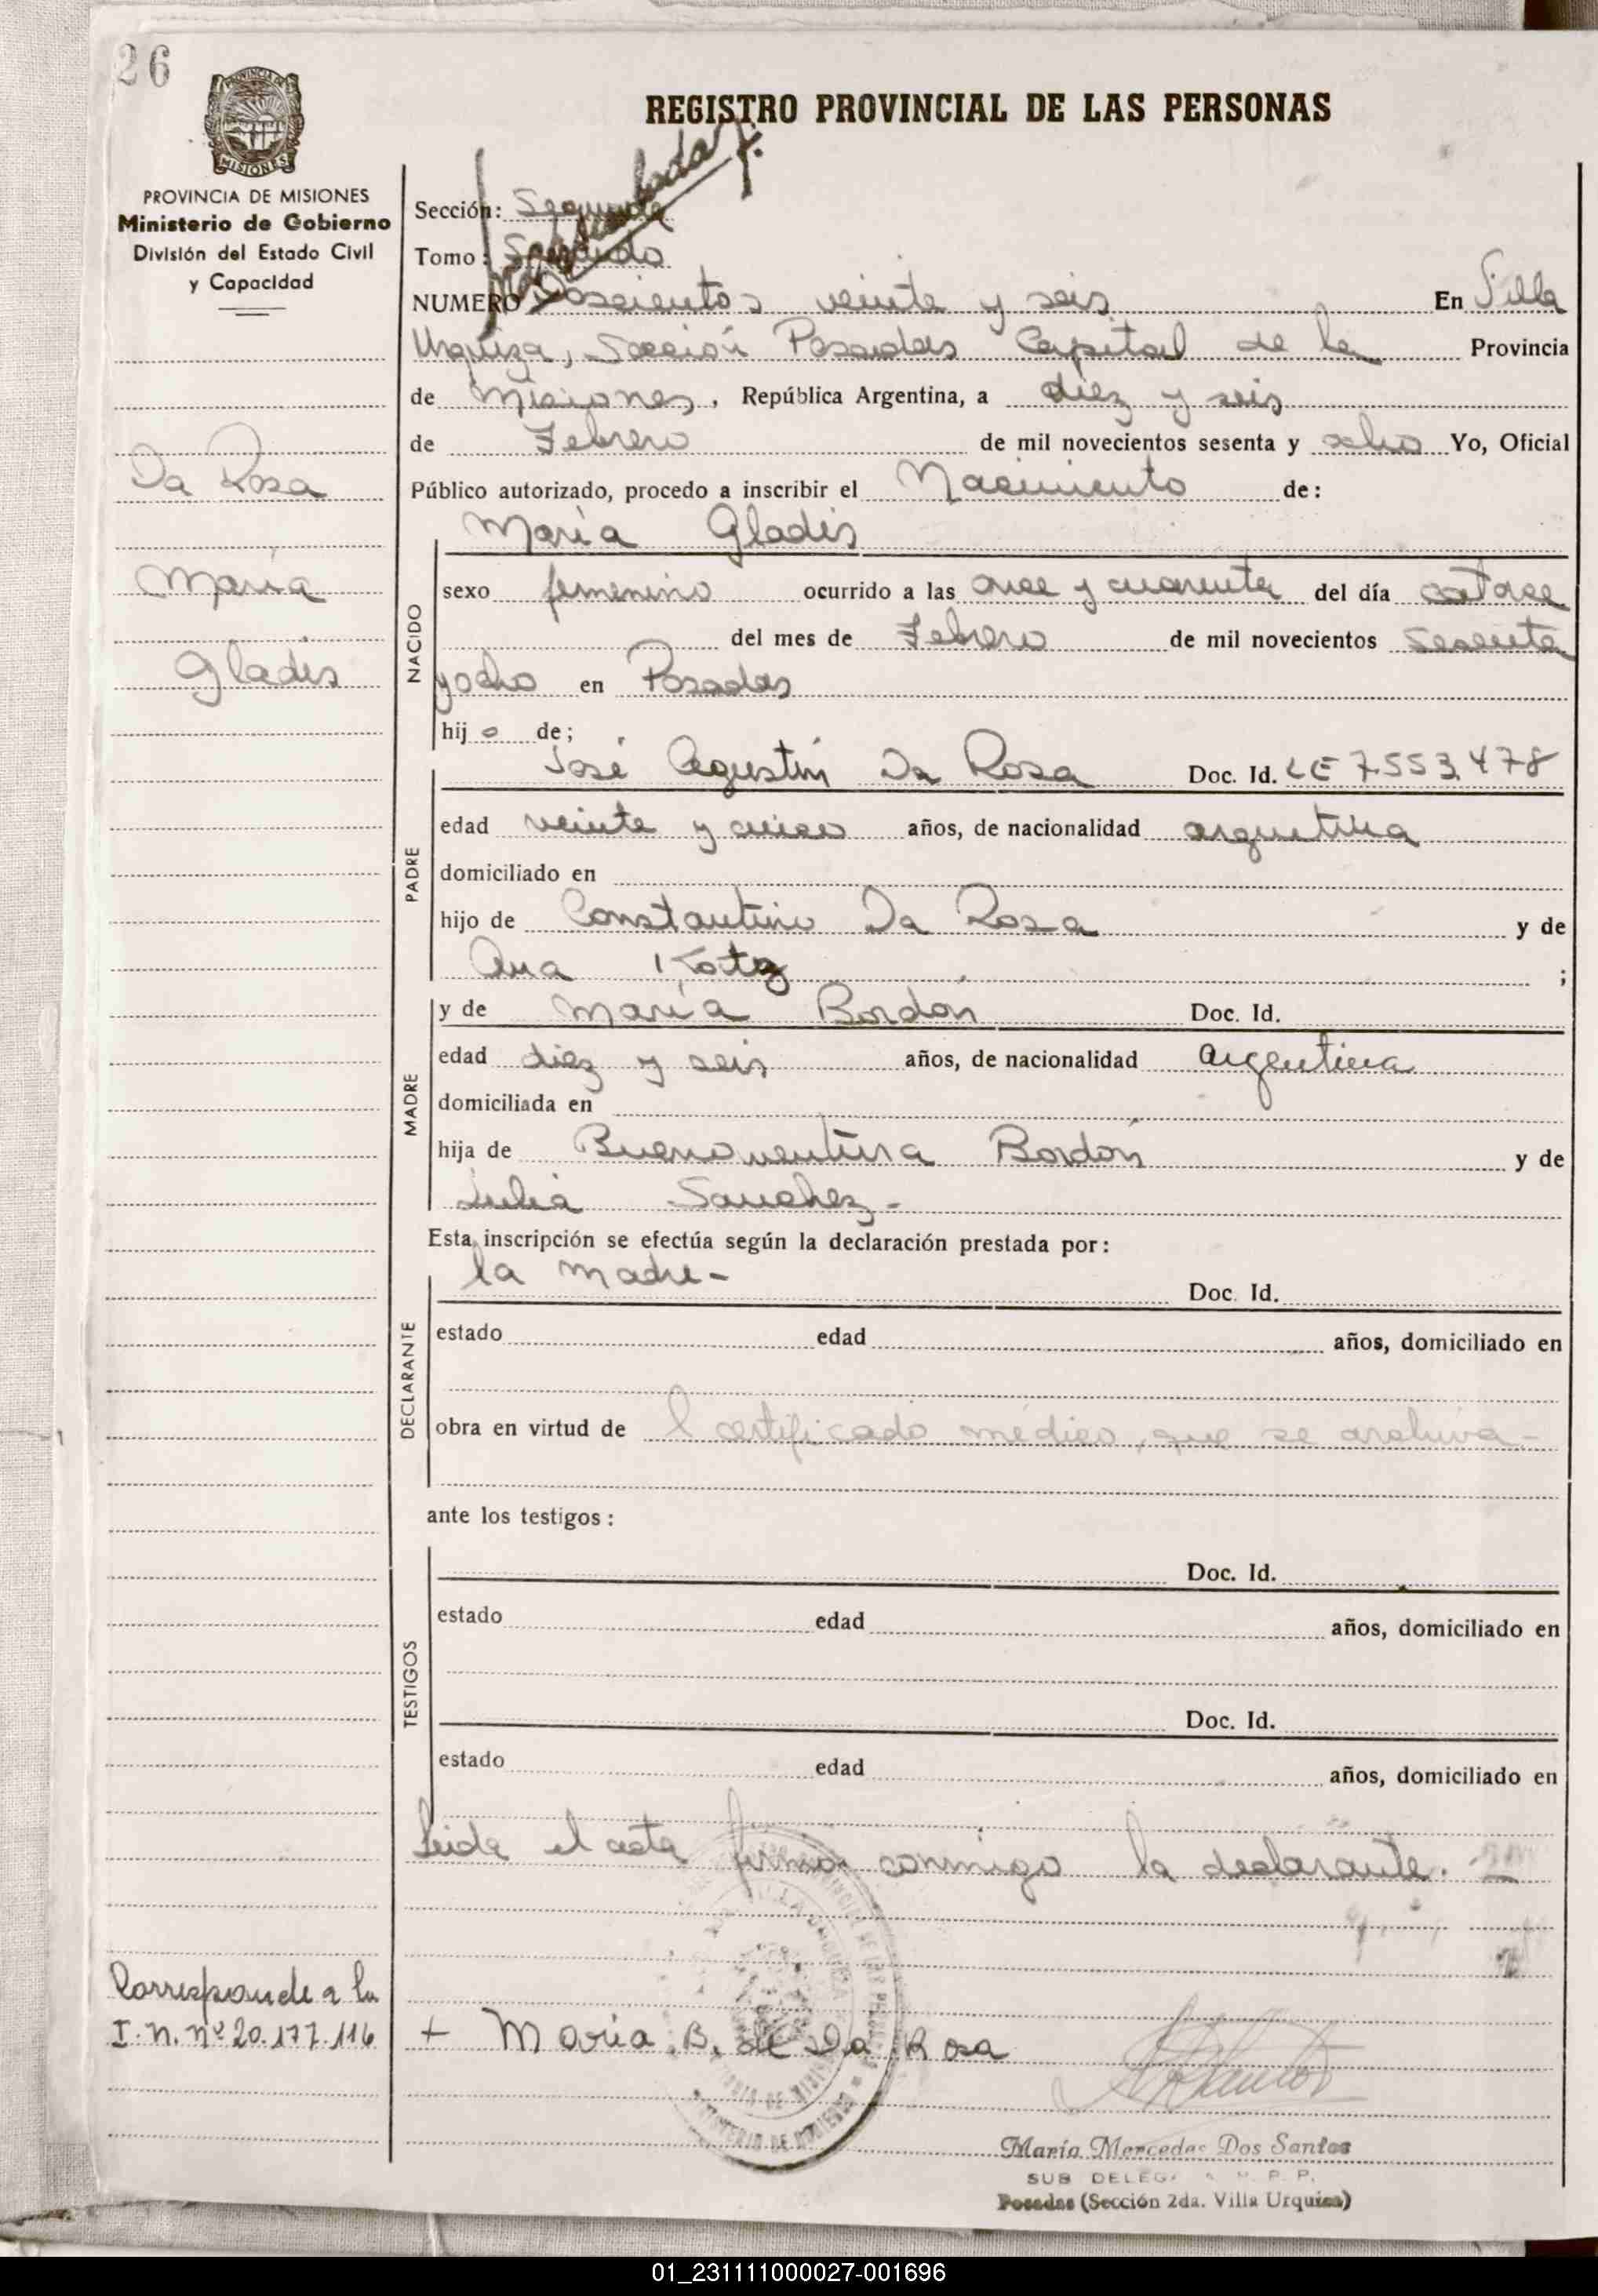 26
PROVINCIA DE
MISIONES
PROVINCIA DE MISIONES
Ministerio de Gobierno
División del Estado Civil
y Capacidad
REGISTRO PROVINCIAL DE LAS PERSONAS
Sección: Segunda
Tomo: Segundo
NUMERO Doscientos veinte y seis En Villa
Urquiza, Sección Posadas Capital de la Provincia
de Misiones, República Argentina, a diez y seis
de Febrero de mil novecientos sesenta y ocho Yo, Oficial
Público autorizado, procedo a inscribir el Nacimiento de:
María Gladis
Da Rosa
María
Gladis
NACIDO
sexo femenino ocurrido a las once y cuarenta del día catorce
del mes de Febrero de mil novecientos sesenta
y ocho en Posadas
hij a de;
PADRE
José Agustín Da Rosa Doc. Id. LE 7.553.478
edad veinte y cinco años, de nacionalidad argentina
domiciliado en
hijo de Constantino Da Rosa y de
Ana Kotz ;
MADRE
y de María Bordón Doc. Id.
edad diez y seis años, de nacionalidad argentina
domiciliada en
hija de Buenaventura Bordón y de
Julia Sanchez -
Esta inscripción se efectúa según la declaración prestada por:
DECLARANTE
la madre - Doc. Id.
estado edad años, domiciliado en
obra en virtud de l certificado médico, que se archiva -
ante los testigos:
TESTIGOS
Doc. Id.
estado edad años, domiciliado en
Doc. Id.
estado edad años, domiciliado en
Leida el acta firma conmigo la declarante. -
Corresponde a la
I. N. nº 20.177.116
+ María B. de Da Rosa
MINISTERIO DE GOBIERNO
María Mercedes Dos Santos
SUB DELEG. R. P. P.
Posadas (Sección 2da. Villa Urquiza)
01_231111000027-001696